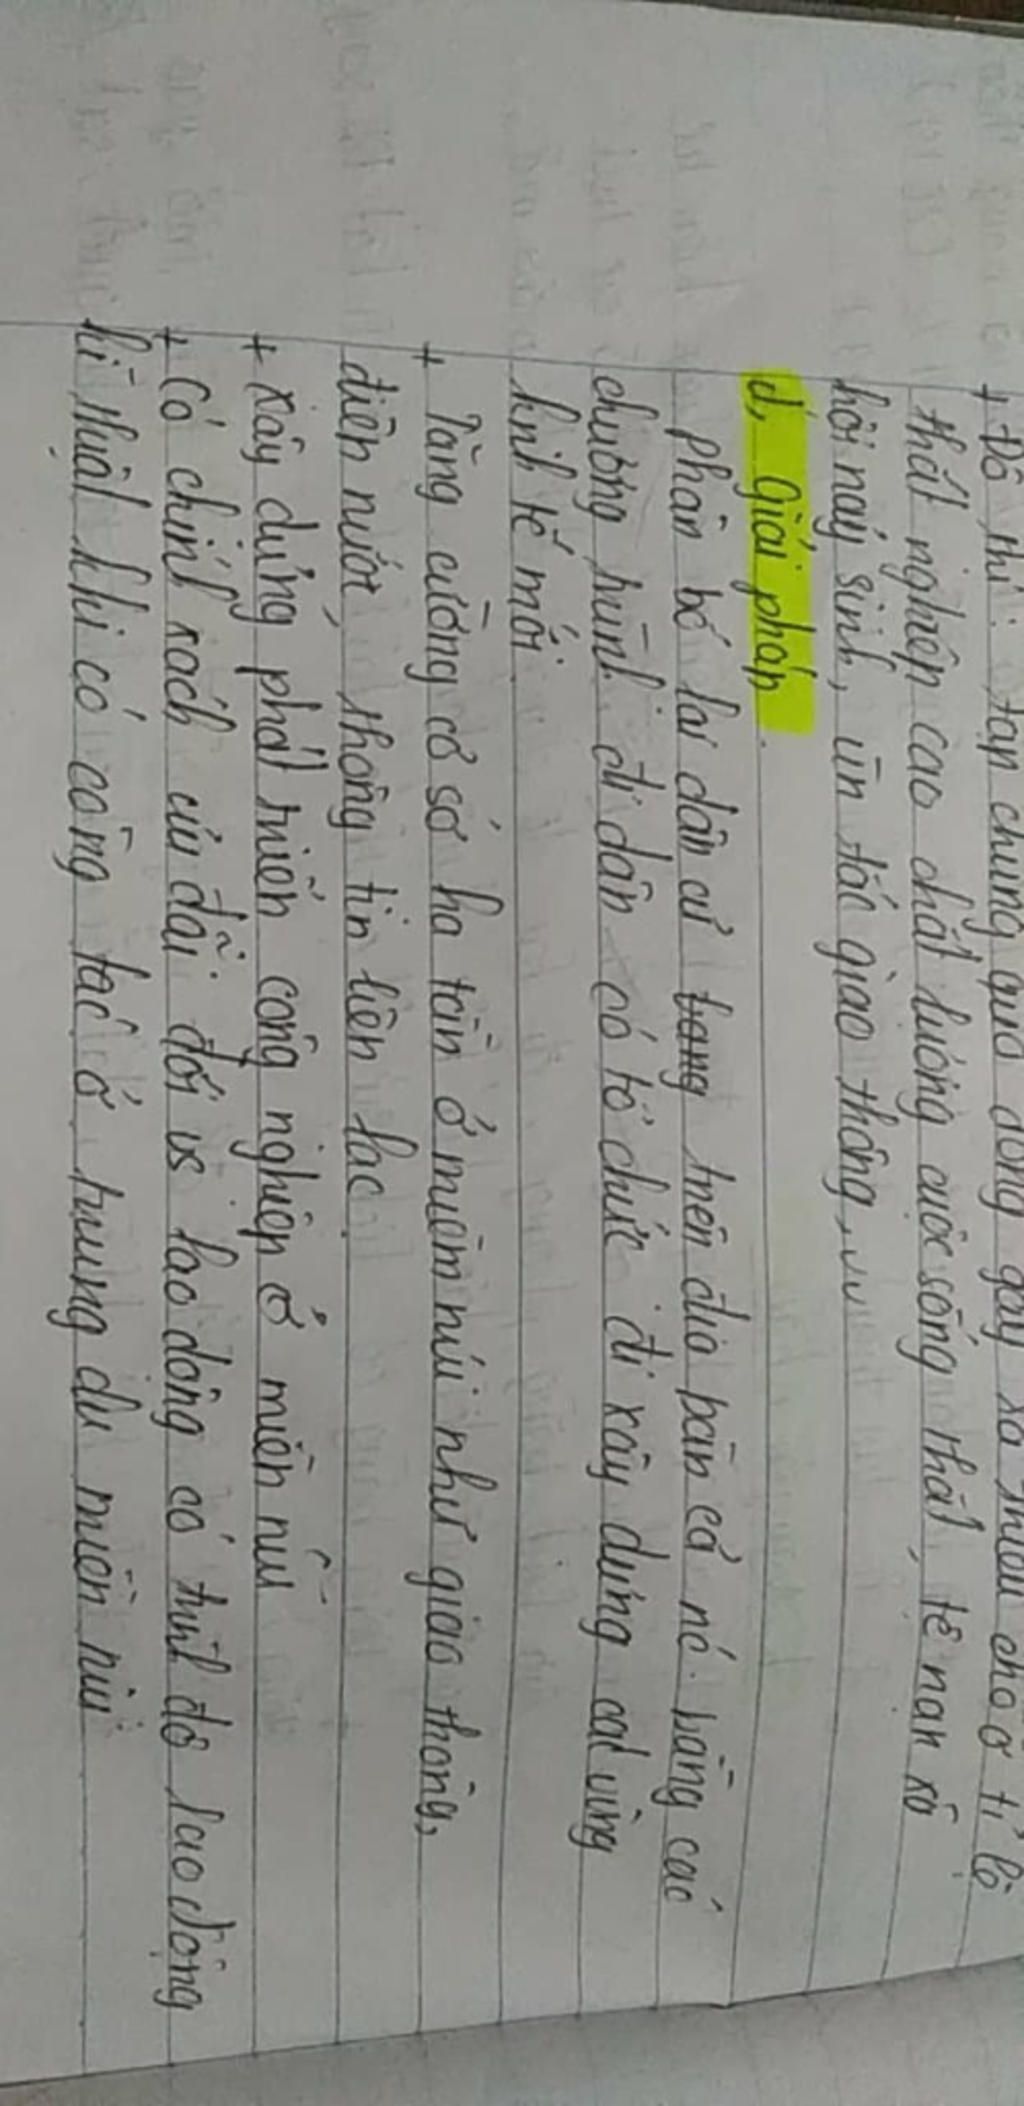 + Đô thị: tập chung quá đông gây ra thiếu chỗ ở tỉ lệ
thất nghiệp cao chất lượng cuộc sống thấp, tệ nạn xã
hội nảy sinh, ùn tắc giao thông, vv
d, Giải pháp
phân bố lại dân cư trong trên địa bàn cả nc bằng các
chương trình di dân có tổ chức đi xây dựng các vùng
kinh tế mới.
+ Tăng cường cơ sở hạ tầng ở miền núi như giao thông,
điện nước, thông tin liên lạc
+ Xây dựng phát triển công nghiệp ở miền núi
+ Có chính xách ưu đãi đối vs lao động có trình độ lao động
kĩ thuật khi có công tác ở trung du miền núi